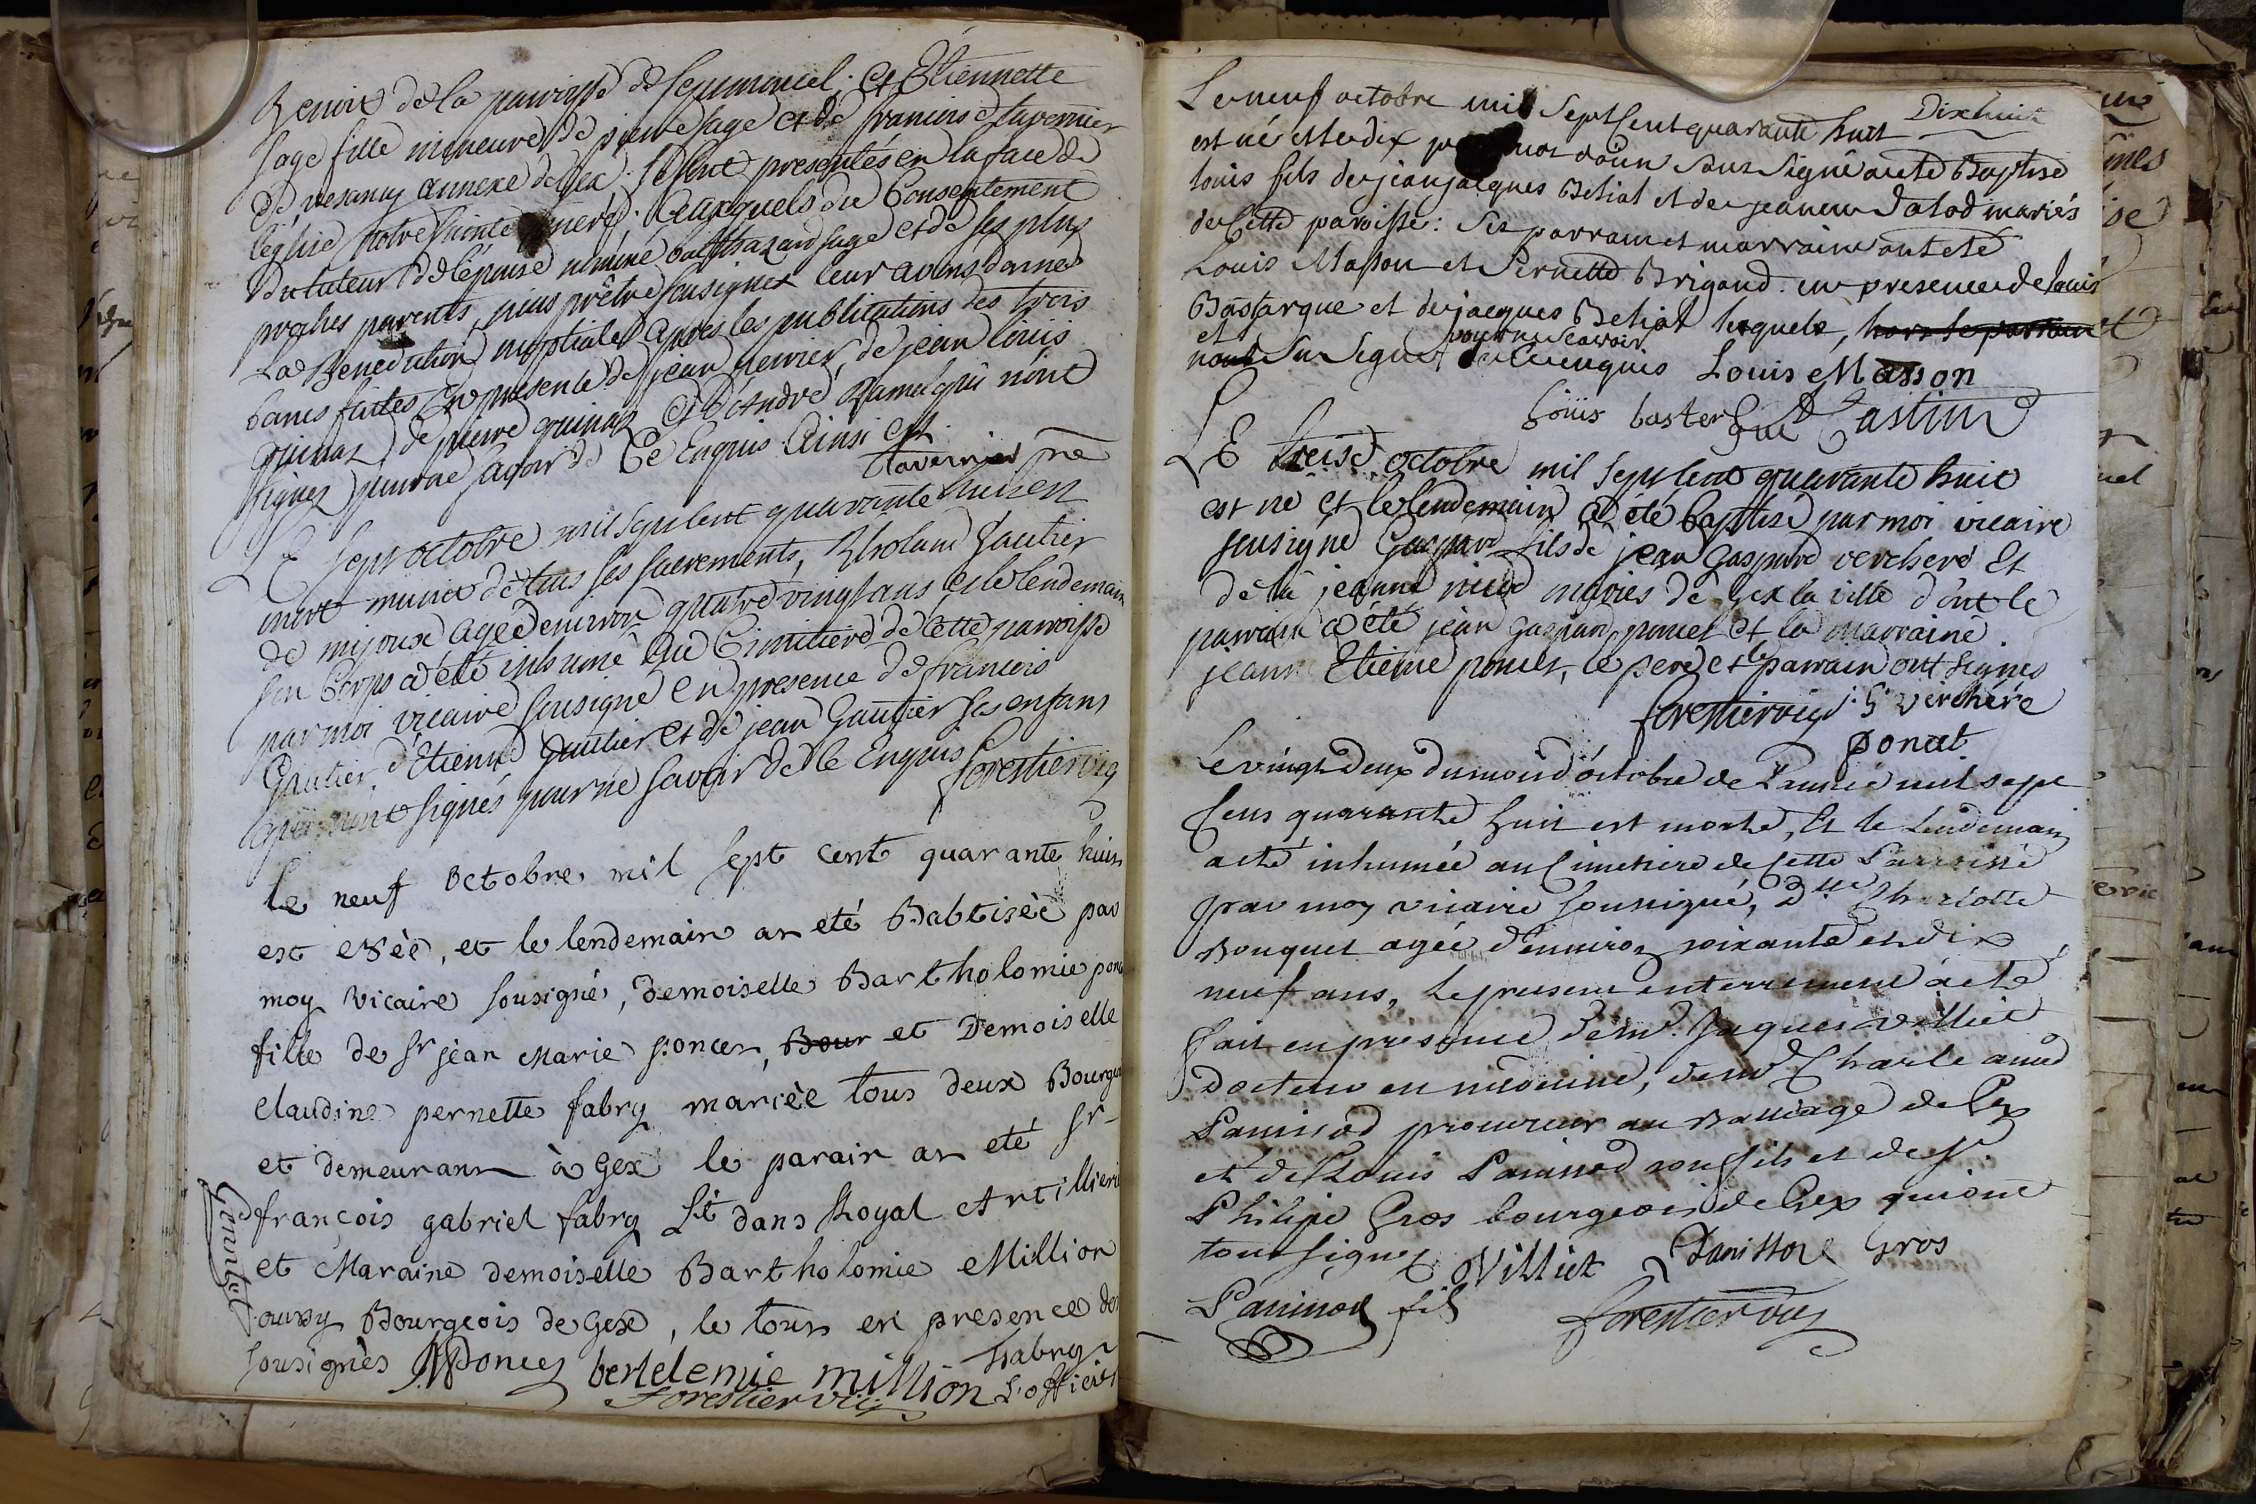 Benoit de la paroisse de septmoncel; Et Étiennette
sage fille mineure de pierre sage et de francoise tavernier
De vesancy annexe de Gex. se sont presentés en la face de
léglise notre sainte mere; Auxquels du Consentement
Du tuteur de l'épouse nommé balthazard sage et de ses plus
proches parents, nous prêtre sousigné leur avons donné
La Benediction nuptiale après les publications des trois
bans faites En presence de jean de jean louis
de pierre Et D'André Ramel qui n'ont
signés pour ne sçavoir de Ce Enquis Ainsi est
tavernier ptre
LE sept octobre mil sept cent quarante huit est
mort munis de tous ses sacrements, Gautier
de mijoux agé d'environ quatre vingt ans et le lendemain
son Corps a été inhumé au Cimitière de cette paroisse
par moi vicaire sousigné En presence de francois
Gautier, d'Etienne Gautier et de jean Gautier ses enfans
qui n'ont signés pour ne savoir de ce Enquis forestier vic
le neuf octobre mil sept cent quarante huit
est néé, et le lendemain at eté Babtiséé par
moy vicaire sousigné, demoiselle Bartholomie ponc
fille de Sr jéan Marie poncet, Bour et Demoiselle
claudine pernette fabry mariéé tous deux Bourgeo
et demeurant à Gex le parain at eté Sr
françois gabriel fabry Lt dans Royal Artillierie
et Maraine demoiselle Bartholomie Million
Bourgeois de Gex, le tout en presence des
sousignés Poncet bertelemie million fabry
forestier vic L. officier
Dixhuit
Le neuf octobre mil sept cent quarante huit
est né et le dix par sous signé a eté Baptisé
louis fils de jean jacques Betiat et de jeanne Dalod mariés
de cette paroisse: ses parrain et marraine ont eté
Louis Masson et Pernette Brigand. en presence de louis
Bastarque et de jacques Betiat lesquels, hors le parrain et
et pour ne scavoir
nont su signer, de ce enquis Louis Masson
Louis basterque Castin
LE treise octobre mil sept cent quarante huit
est né et le lendemain a été baptisé par moi vicaire
sousigné Gaspard fils de jean Gaspard verchere Et
de la jeanne mariés de Gex la ville dont le
parrain a été jean Gaspard poncet et la marraine
jeanne Etienne poncet, le pere et le parrain ont signés
forestier vic j: G verchére
poncet
Le vingt deux du mois d'octobre de l'année mil sept
cens quarante huit est morte, Et le lendemain
a eté inhumée au Cimetiere de Cette Parroisse
par moy vicaire soussigné, Dlle Charlotte
Bouquet agée d'environ soixante et dix
neuf ans, le present enterrement a eté
fait en presence de mr. Jaques Villiet
docteur en medecine, de mr Charle amed
Panissod procureur au Bailliage de Gex
et de Louis Panissod son fils et de Sr.
Philipe Gros bourgeois de Gex qui ont
tous signez Villiet Panissod Gros
Panissod fils forestier vic